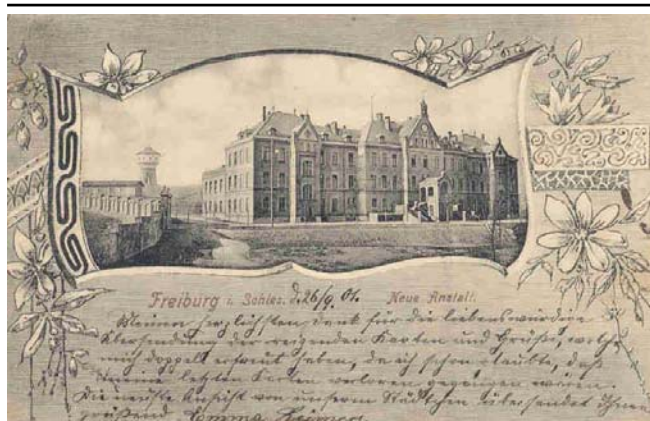 Freiburg i. Schles. d. 26/9. 01. Neue Anstalt.
Meinen herzlichsten Dank für die liebenswürdige
Übersendung der reizenden Karten und Grüße, welche
mich doppelt erfreut haben, da ich schon glaubte, daß
meine letzten Karten verloren gegangen wären.
Die neuste Ansicht von unserm Städtchen übersendet Ihnen
grüßend Emma